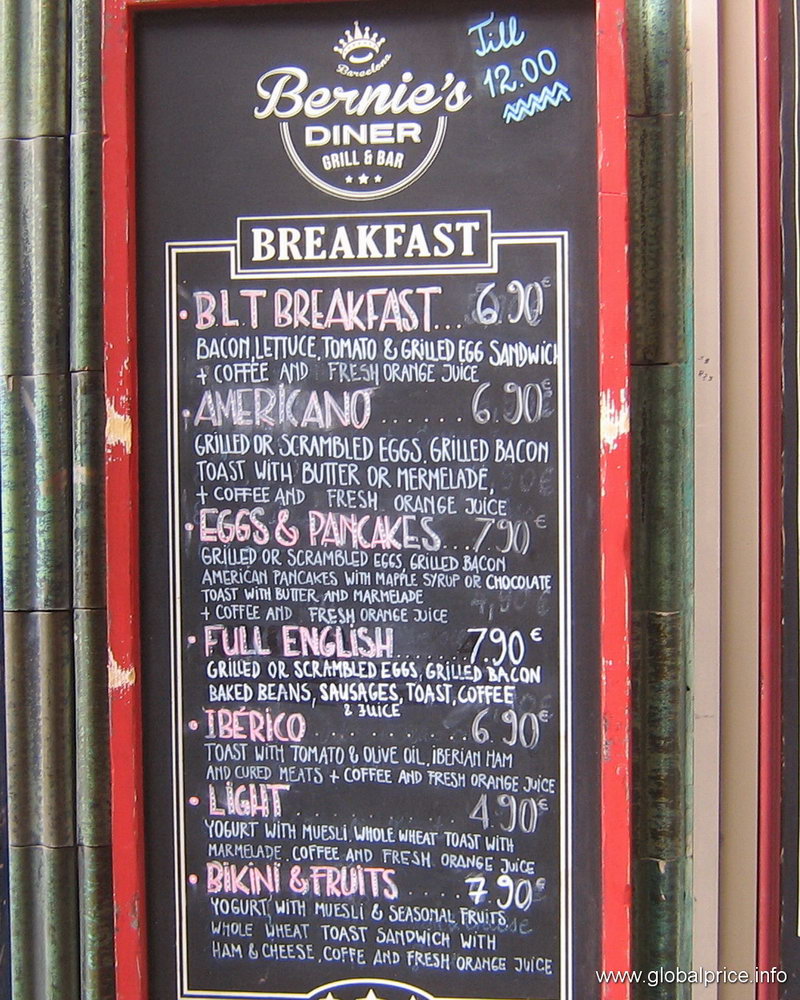 Barcelona
Bernie's
DINER
GRILL & BAR
Till
12.00
BREAKFAST
• B.L.T BREAKFAST... 6.90€
BACON, LETTUCE, TOMATO & GRILLED EGG SANDWICH
+ COFFEE AND FRESH ORANGE JUICE
• AMERICANO ....... 6.90€
GRILLED OR SCRAMBLED EGGS, GRILLED BACON
TOAST WITH BUTTER OR MERMELADE,
+ COFFEE AND FRESH ORANGE JUICE
• EGGS & PANCAKES... 7.90€
GRILLED OR SCRAMBLED EGGS, GRILLED BACON
AMERICAN PANCAKES WITH MAPPLE SYRUP OR CHOCOLATE
TOAST WITH BUTTER AND MARMELADE
+ COFFEE AND FRESH ORANGE JUICE
• FULL ENGLISH ....... 7.90€
GRILLED OR SCRAMBLED EGGS, GRILLED BACON
BAKED BEANS, SAUSAGES, TOAST, COFFEE
& JUICE
• IBÉRICO .......... 6.90€
TOAST WITH TOMATO & OLIVE OIL, IBERIAN HAM
AND CURED MEATS + COFFEE AND FRESH ORANGE JUICE
• LIGHT ............ 4.90€
YOGURT WITH MUESLI, WHOLE WHEAT TOAST WITH
MARMELADE. COFFEE AND FRESH ORANGE JUICE
• BIKINI & FRUITS ..... 7.90€
YOGURT WITH MUESLI & SEASONAL FRUITS
WHOLE WHEAT TOAST SANDWICH WITH
HAM & CHEESE, COFFE AND FRESH ORANGE JUICE
www.globalprice.info